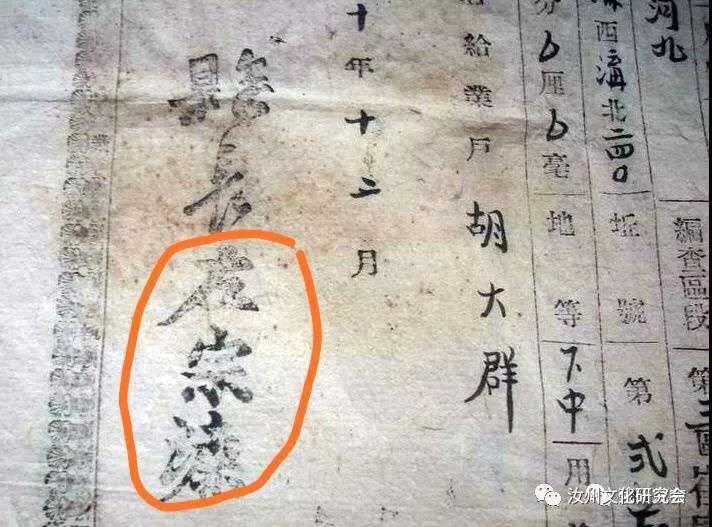 河北
編查區段第三區
西溝北二四0
坵號第弍
分6厘6毫地等下中用
給業戶胡大群
十年十二月
縣長左宗濂
汝州文化研究会